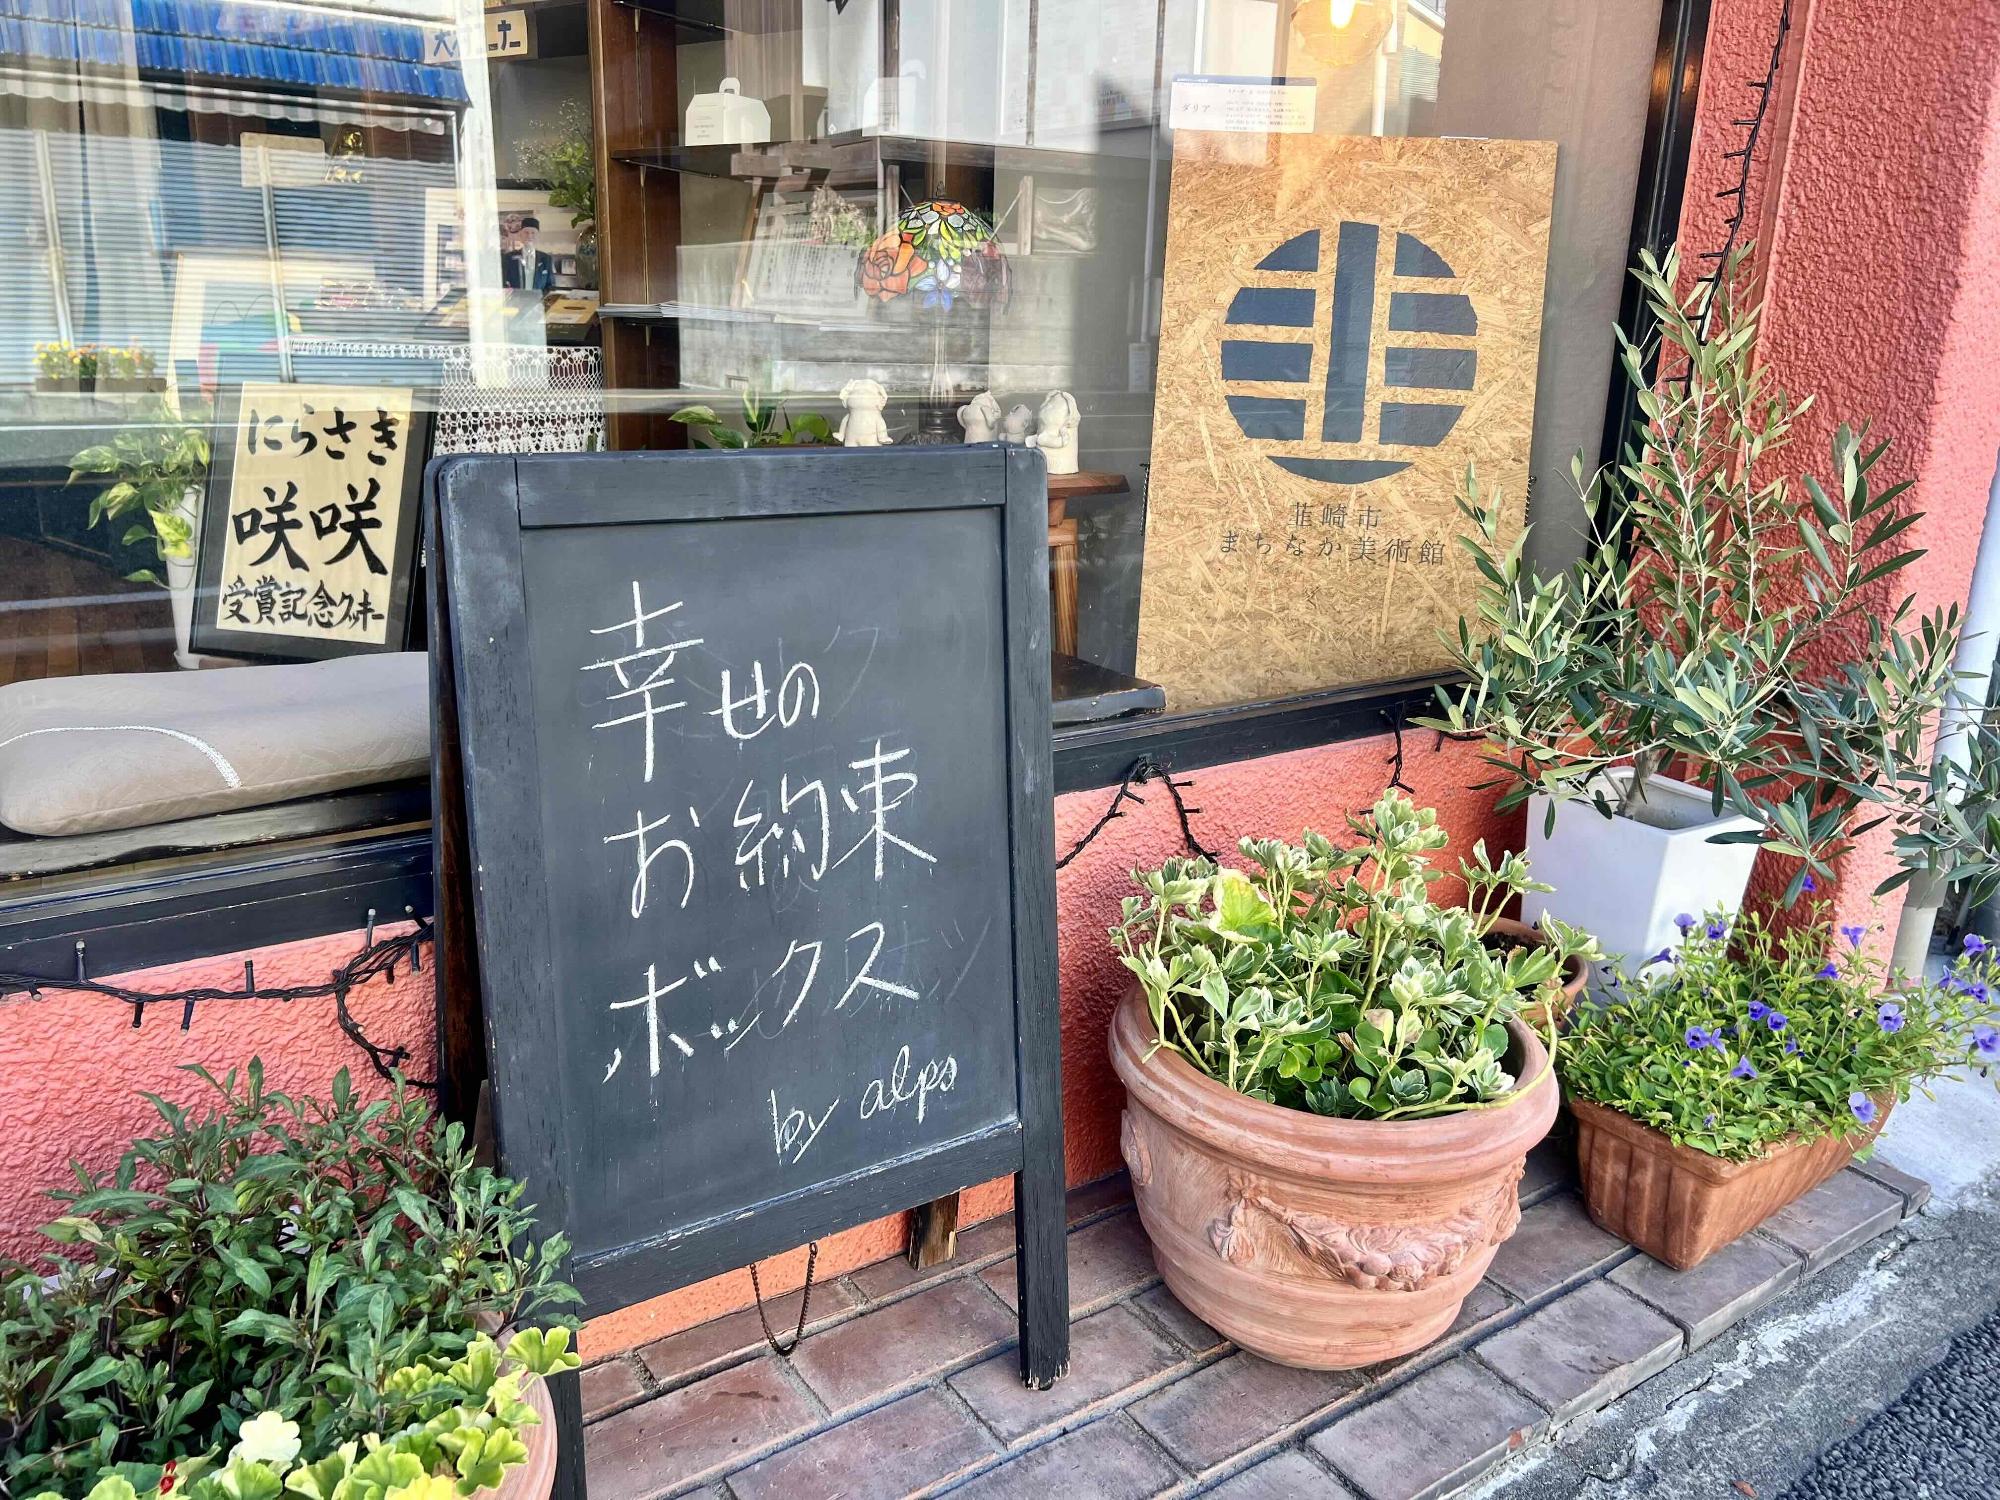 ダリア
にらさき
咲咲
受賞記念クッキー
韮崎市
まちなか美術館
幸せの
お約束
ボックス
by alps